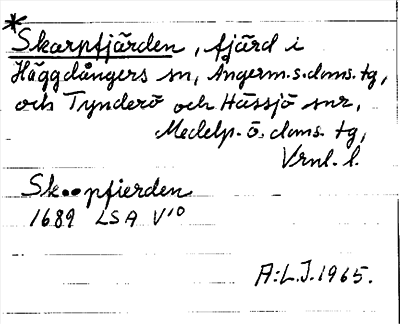 *
Skarpfjärden, fjärd i
Häggdångers sn, Ångerm. s. doms. tg,
och Tynderö och Hässjö snr,
Medelp. ö. doms. tg,
Vrnl. l.
Sk..pfierden
1689 LSA V10
A:L.J. 1965.